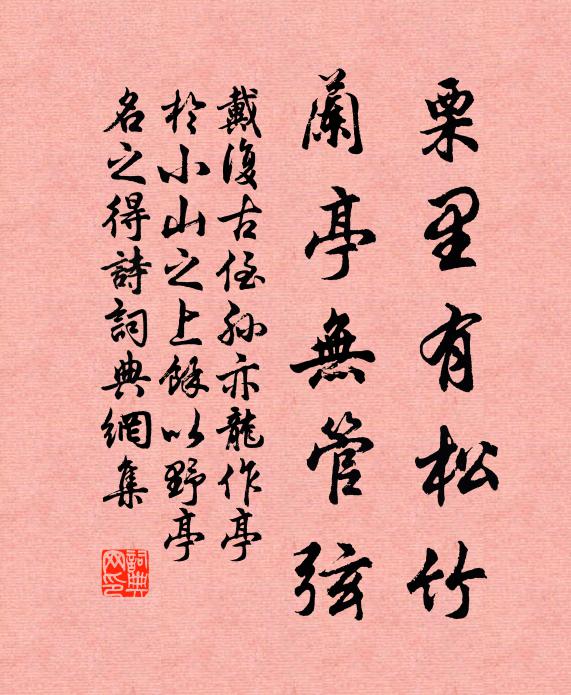 栗里有松竹
蘭亭無管弦
戴復古侄孫亦龍作亭
於小山之上餘以野亭
名之得詩詞典網集
詞典網印